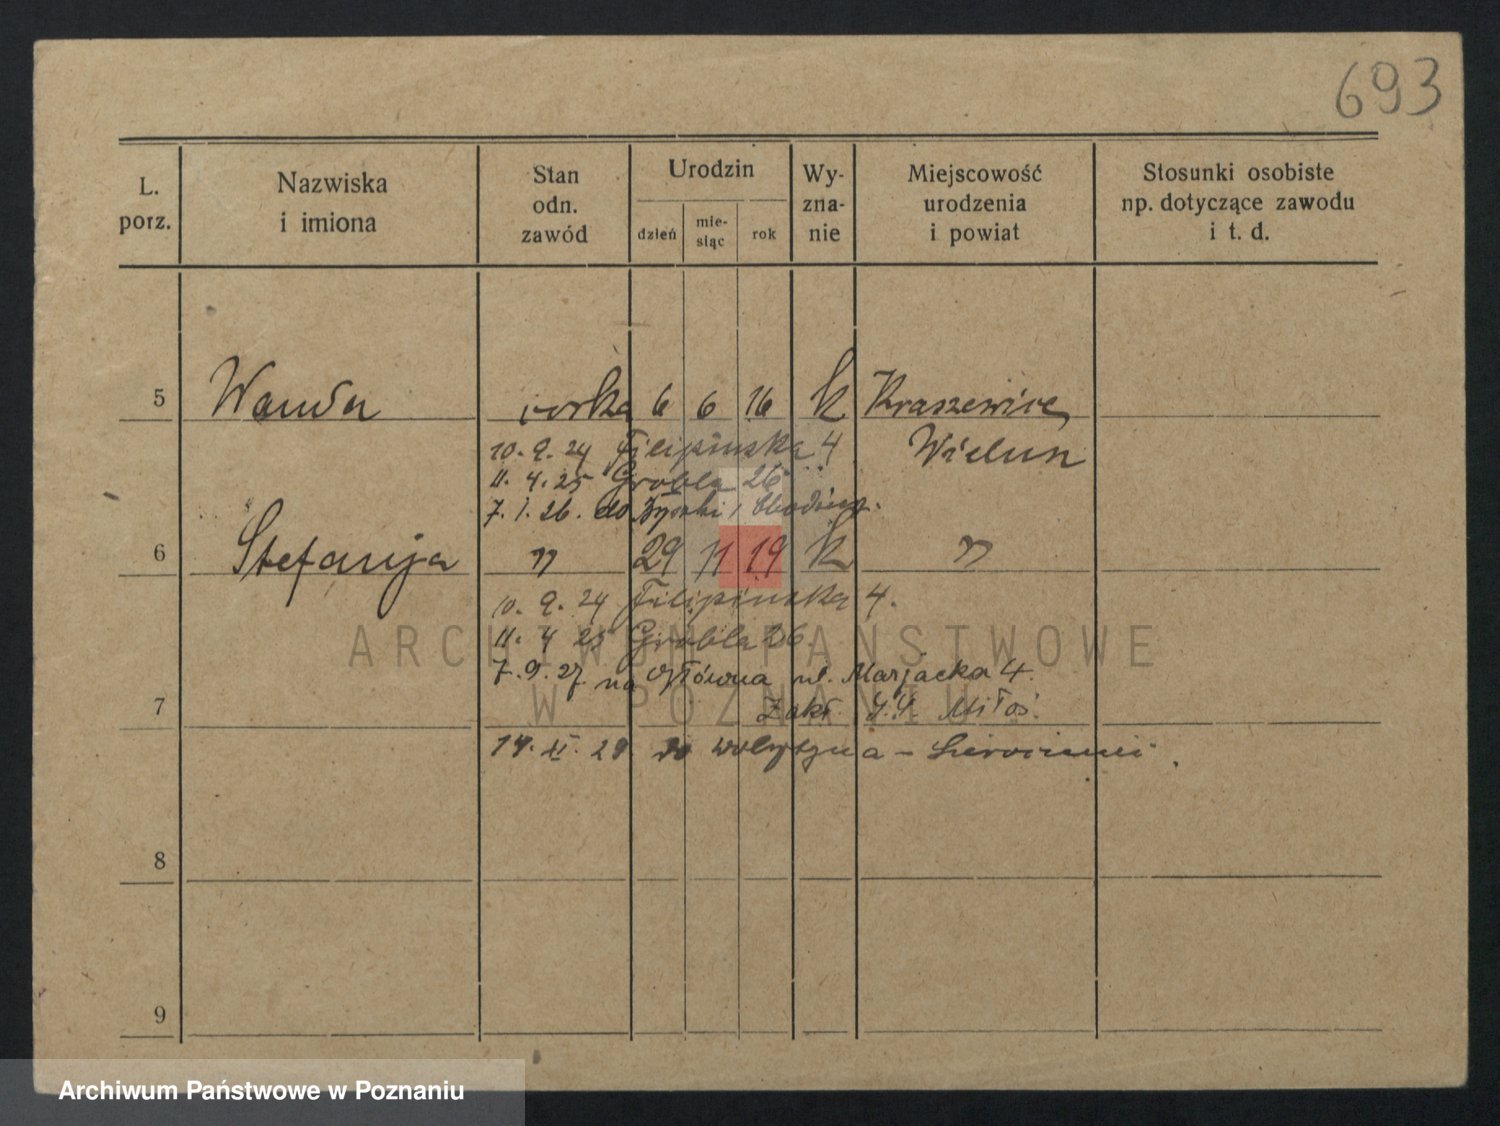 693
L. porz.
Nazwiska i imiona
Stan odn. zawód
Urodzin
dzień
mie- siąc
rok
Wy- zna- nie
Miejscowość urodzenia i powiat
Stosunki osobiste np. dotyczące zawodu i t. d.
5 Wanda córka 6 6 16 k Kraszewice
10. 9. 24 Filipińska 4 Wieluń
11. 4. 25 Grobla 26
7. 1. 26. do
6 Stefanja " 29 11 19 k "
10. 9. 24 Filipińska 4.
11. 4 25 Grobla 26
7. 9. 27. na Główna ul. Marjacka 4.
7 Zakł. S.S. Miłos.
14. XI. 29 do Wolsztyna -
8
9
ARCHIWUM PAŃSTWOWE
W POZNANIU
Archiwum Państwowe w Poznaniu